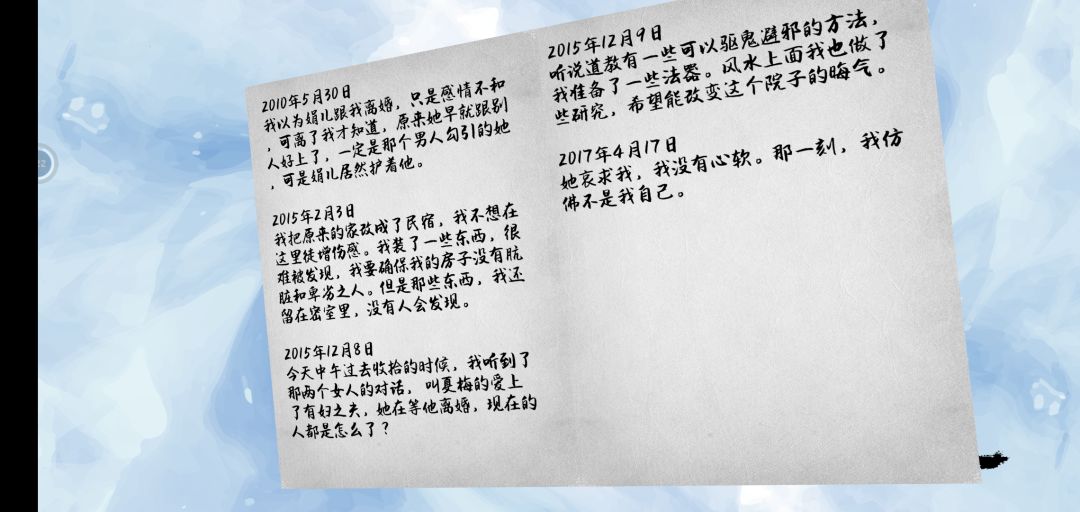 2010年5月30日
我以为娟儿跟我离婚，只是感情不和
，可离了我才知道，原来她早就跟别
人好上了，一定是那个男人勾引的她
，可是娟儿居然护着他。
2015年2月3日
我把原来的家改成了民宿，我不想在
这里徒增伤感。我装了一些东西，很
难被发现，我要确保我的房子没有肮
脏和卑劣之人。但是那些东西，我还
留在密室里，没有人会发现。
2015年12月8日
今天中午过去收拾的时候，我听到了
那两个女人的对话，叫夏梅的爱上
了有妇之夫，她在等他离婚，现在的
人都是怎么了？
2015年12月9日
听说道教有一些可以驱鬼避邪的方法，
我准备了一些法器。风水上面我也做了
些研究，希望能改变这个院子的晦气。
2017年4月17日
她哀求我，我没有心软。那一刻，我仿
佛不是我自己。